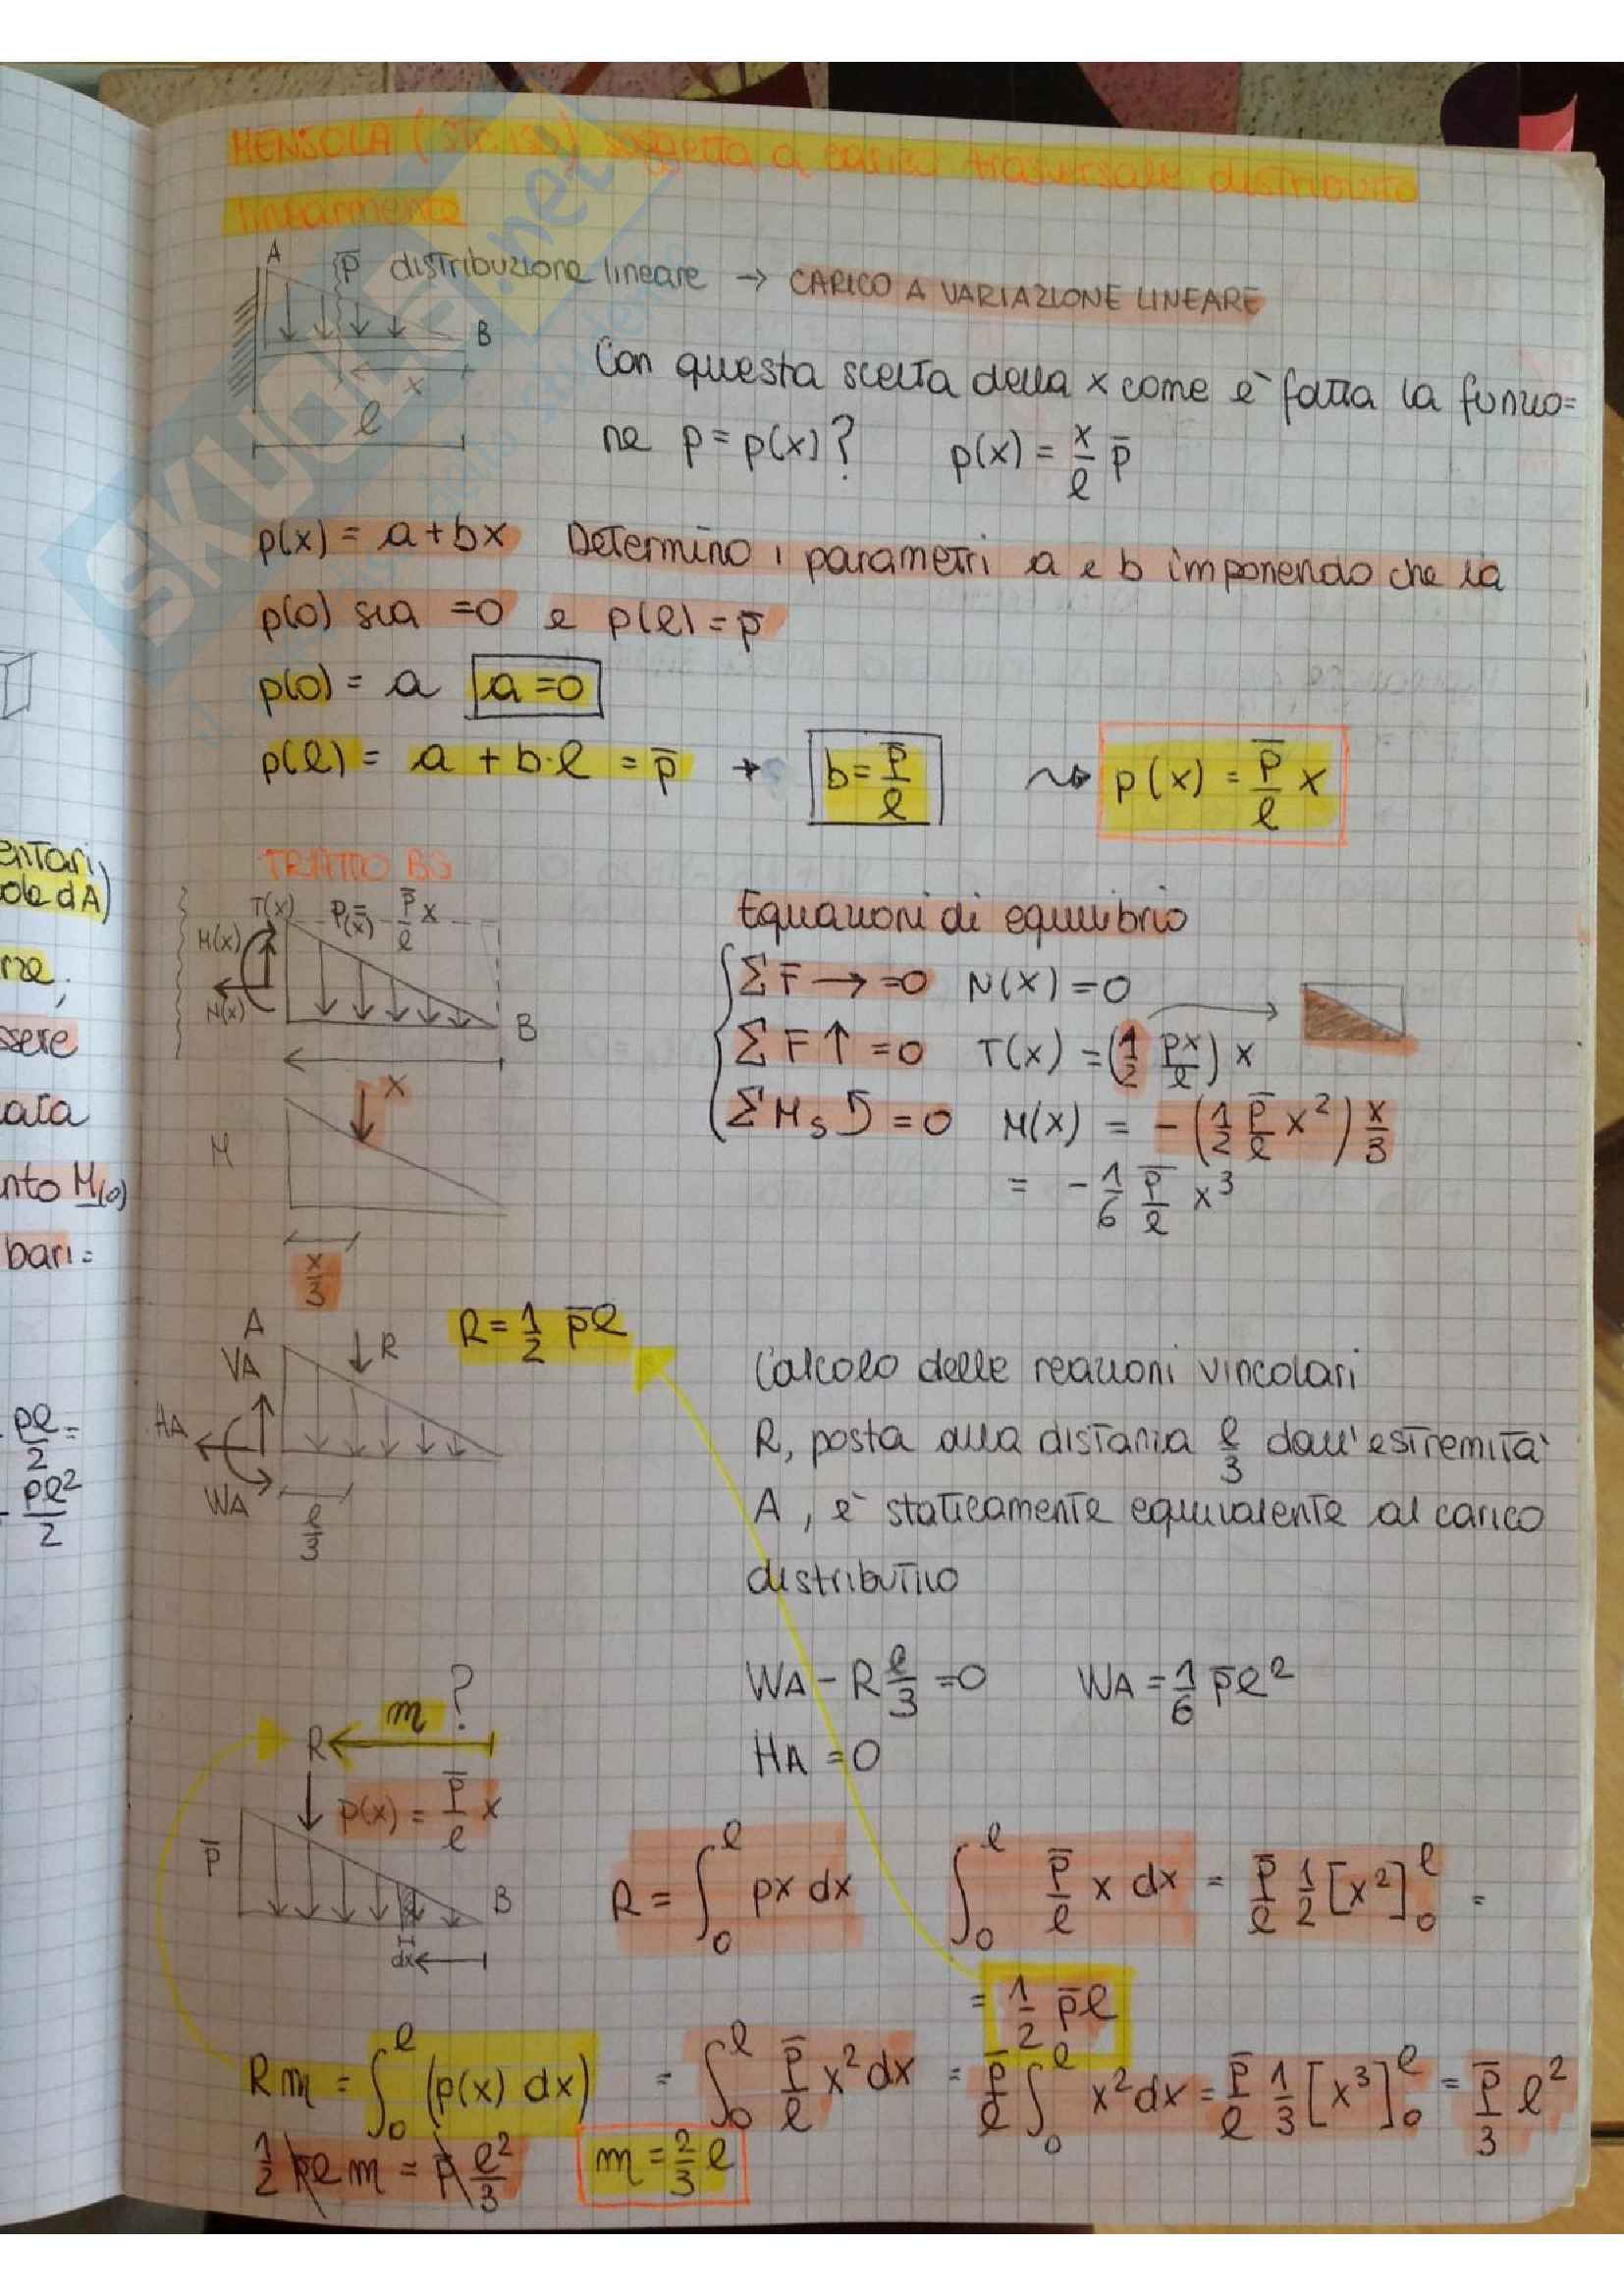 MENSOLA (STR. ISO) soggetta a carico trasversale distribuito
linearmente
A
p̄ distribuzione lineare → CARICO A VARIAZIONE LINEARE
B
x
ℓ
Con questa scelta della x come è fatta la funzio=
ne p = p(x)? p(x) = x/ℓ p̄
p(x) = a+bx Determino i parametri a e b imponendo che la
p(0) sia =0 e p(ℓ) = p̄
p(0) = a a=0
p(ℓ) = a + b·ℓ = p̄ → b = p̄/ℓ ⇝ p(x) = p̄/ℓ x
TRATTO BS
T(x) p(x) = p̄/ℓ x
M(x)
N(x)
B
x
Equazioni di equilibrio
ΣF → =0 N(x) =0
ΣF ↑ =0 T(x) = (1/2 px/ℓ) x
ΣMs =0 M(x) = - (1/2 p̄/ℓ x²) x/3
= - 1/6 p̄/ℓ x³
M
x/3
A
VA
HA
WA
R
R = 1/2 p̄ℓ
ℓ/3
Calcolo delle reazioni vincolari
R, posta alla distanza ℓ/3 dall'estremità
A, è staticamente equivalente al carico
distributivo
WA - R ℓ/3 =0 WA = 1/6 p̄ℓ²
HA =0
m ?
R
p(x) = p̄/ℓ x
p̄
B
dx
R = ∫₀^ℓ px dx ∫₀^ℓ p̄/ℓ x dx = p̄/ℓ 1/2 [x²]₀^ℓ =
= 1/2 p̄ℓ
Rm = ∫₀^ℓ (p(x) dx) = ∫₀^ℓ p̄/ℓ x² dx = p̄/ℓ ∫₀^ℓ x² dx = p̄/ℓ 1/3 [x³]₀^ℓ = p̄/3 ℓ²
1/2 p̄ℓ m = p̄ ℓ²/3 m = 2/3 ℓ
entari,
ole dA)
rze;
ssere
ata
nto M(o)
bari=
pℓ/2 =
- pℓ²/2
SKUOLA.net